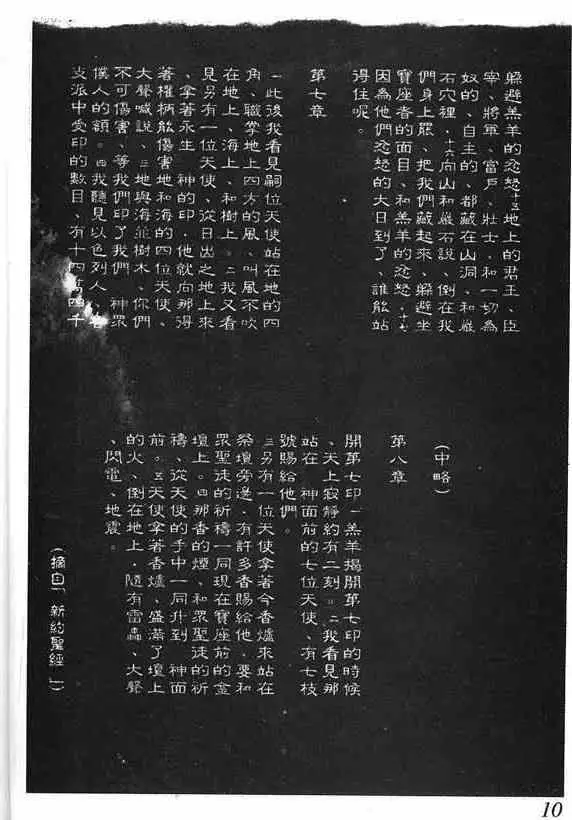 躲避羔羊的忿怒十五地上的君王、臣
宰、將軍、富戶、壯士、和一切為
奴的、自主的、都藏在山洞、和巖
石穴裡、十六向山和巖石說、倒在我
們身上罷、把我們藏起來、躲避坐
寶座者的面目、和羔羊的忿怒、十七
因為他們忿怒的大日到了、誰能站
得住呢。
第七章
一此後我看見嗣位天使站在地的四
角、職掌地上四方的風、叫風不吹
在地上、海上、和樹上。二我又看
見另有一位天使、從日出之地上來
、拿著永生 神的印、他就向那得
著權柄能傷害地和海的四位天使、
大聲喊說、三地與海並樹木、你們
不可傷害、等我們印了我們 神眾
僕人的額。四我聽見以色列人
支派中受印的數目、有十四萬四千
(中略)
第八章
開第七印一羔羊揭開第七印的時候
、天上寂靜約有二刻。二我看見那
站在 神面前的七位天使、有七枝
號賜給他們。
三另有一位天使拿著今香爐來站在
祭壇旁邊、有許多香賜給他、要和
眾聖徒的祈禱一同現在寶座前的金
壇上。四那香的煙、和眾聖徒的祈
禱、從天使的手中一同升到 神面
前。五天使拿著香爐、盛滿了壇上
的火、倒在地上、隨有雷轟、大聲
、閃電、地震。
(摘自「新約聖經」)
10